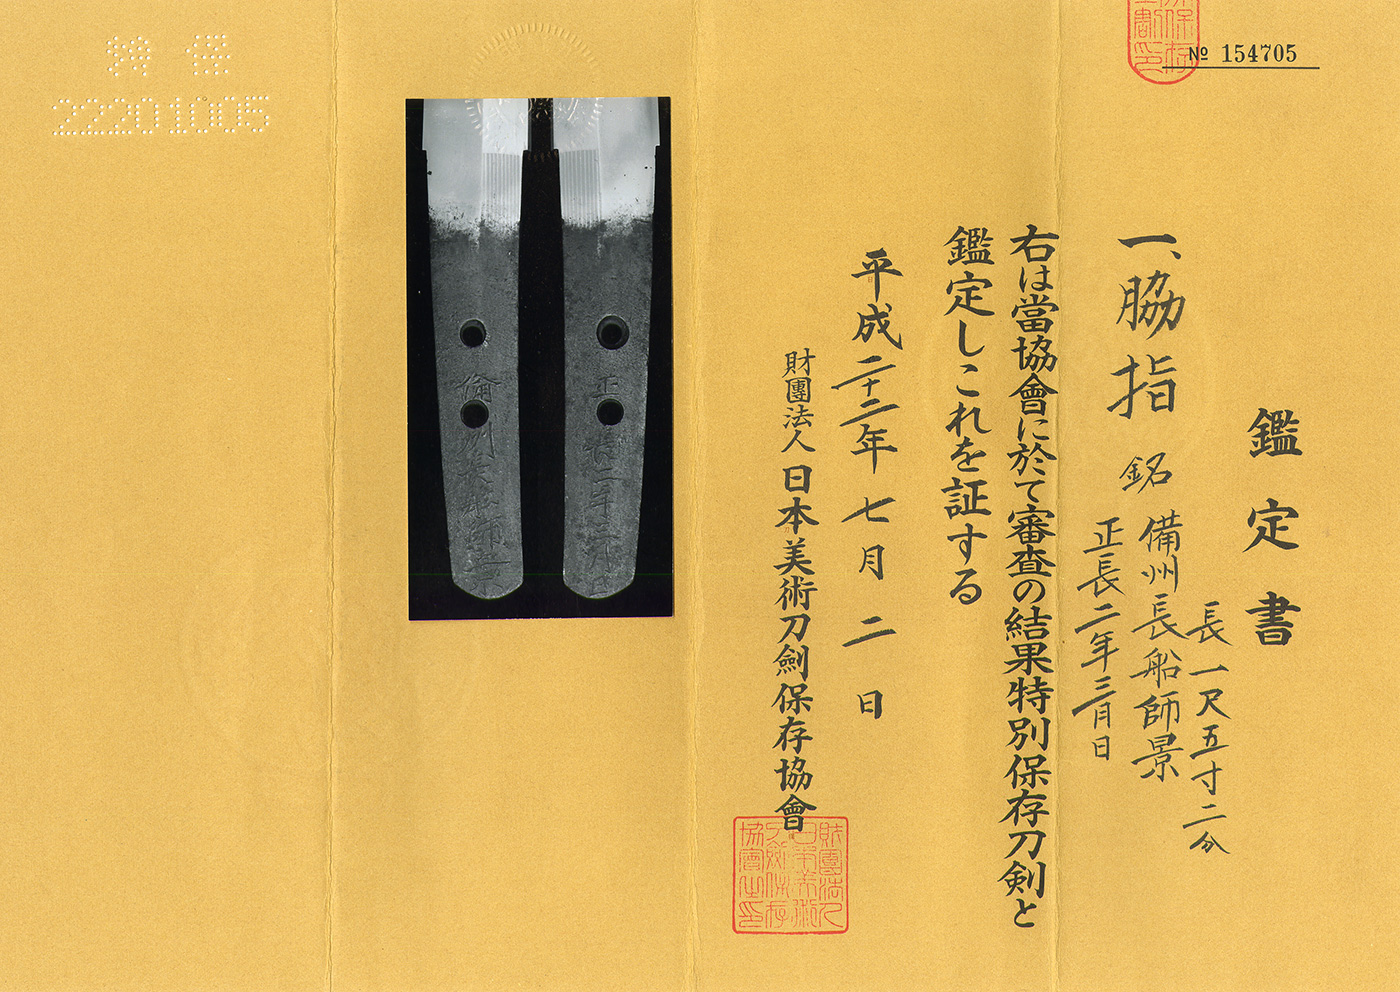 № 154705
鑑定書
一、脇指
長一尺五寸二分
銘 備州長船師景
正長二年三月日
右は當協會に於て審査の結果特別保存刀剣と
鑑定しこれを証する
平成二十二年七月二日
財團法人 日本美術刀劍保存協會
財團法人日本美術刀劍保存協會之印
正長二年三月日
備州長船師景
特保
22201005